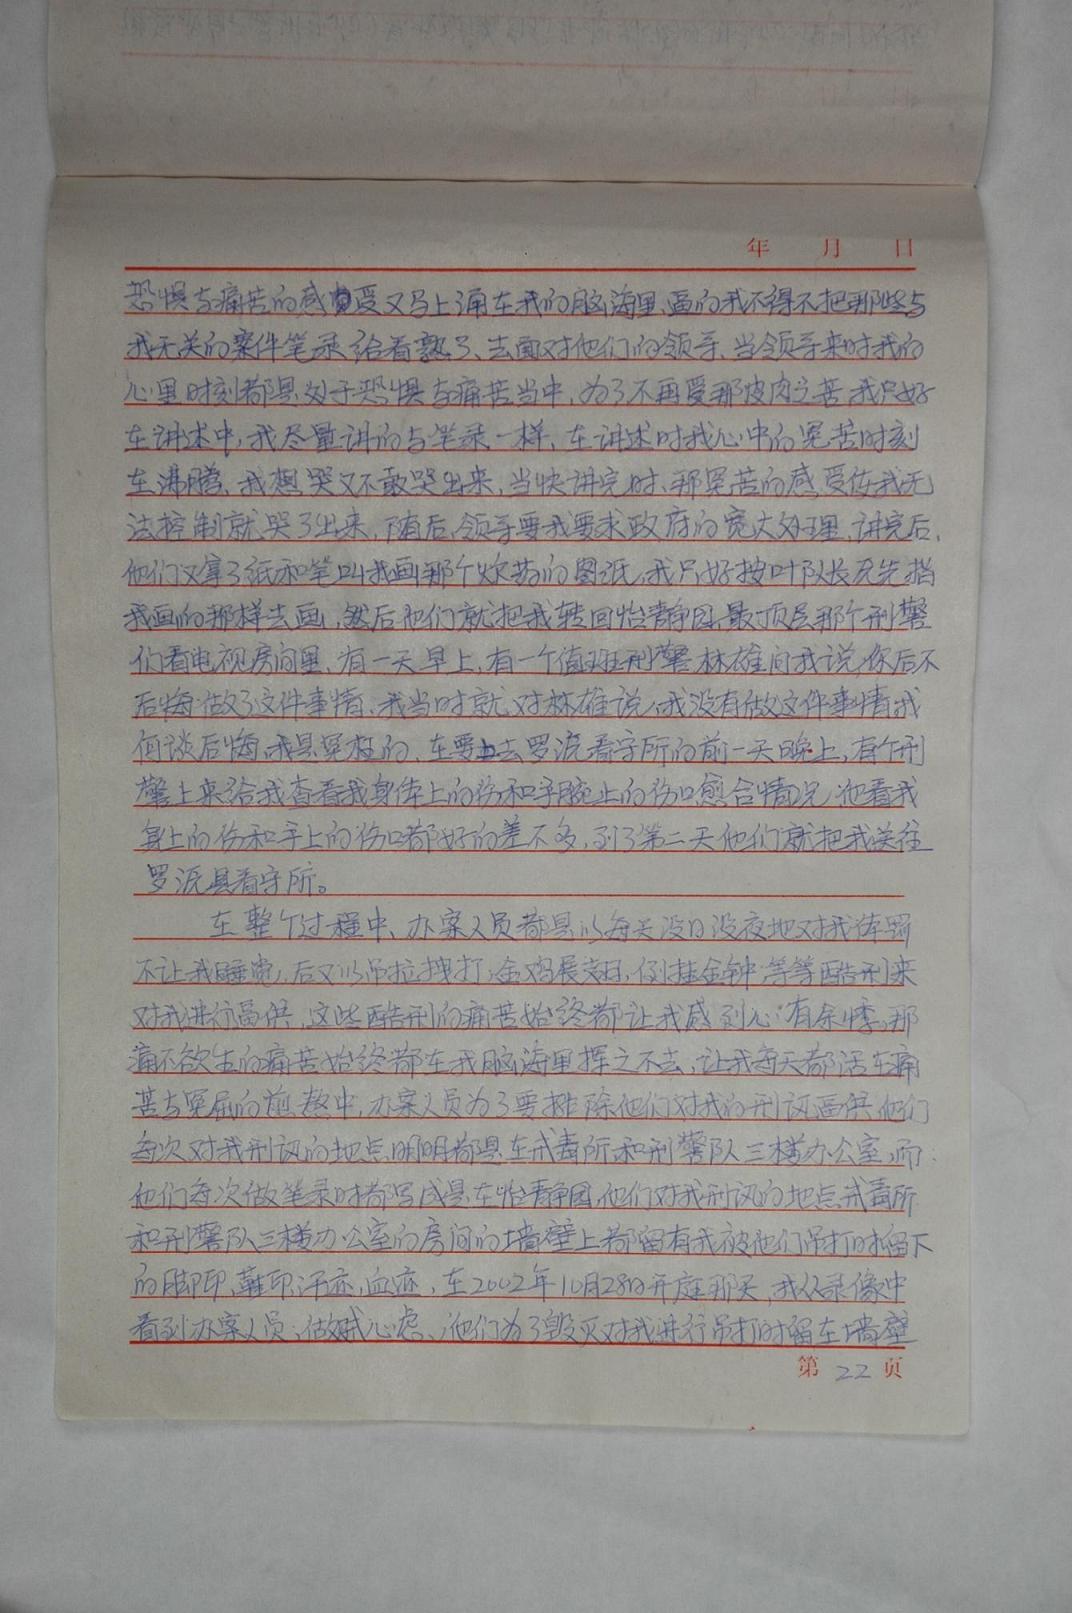 年 月 日
恐惧与痛苦的感受又马上涌在我的脑海里,逼的我不得不把那些与
我无关的案件笔录给看熟了、去面对他们的领导、当领导来时我的
心里时刻都是处于恐惧与痛苦当中,为了不再受那皮肉之苦我只好
在讲述中,我尽量讲的与笔录一样、在讲述时我心中的冤苦时刻
在沸腾、我想哭又不敢哭出来,当快讲完时、那冤苦的感受使我无
法控制就哭了出来,随后,领导要我要求政府的宽大处理,讲完后,
他们又拿了纸和笔叫我画那个炸药的图纸,我只好按叶队长死先指
我画的那样去画,然后他们就把我转回怡静园最顶层那个刑警
们看电视房间里,有一天早上,有一个值班刑警林雄问我说,你后不
后悔做了这件事情、我当时就对林雄说,我没有做这件事情我
何谈后悔,我是冤枉的、在要去罗源看守所的前一天晚上,有个刑
警上来给我查看我身体上的伤和手腕上的伤口愈合情况,他看我
身上的伤和手上的伤口都好的差不多,到了第二天他们就把我送往
罗源县看守所。
在整个过程中、办案人员都是以每天没日没夜地对我体罚
不让我睡觉,后又以吊拉拽打,金鸡展翅,倒挂金钟,等等酷刑来
对我进行逼供,这些酷刑的痛苦始终都让我感到心有余悸,那
痛不欲生的痛苦始终都在我脑海里挥之不去,让我每天都活在痛
苦与冤屈的煎熬中,办案人员为了要排除他们对我的刑讯逼供,他们
每次对我刑讯的地点,明明都是在戒毒所和刑警队三楼办公室,而
他们每次做笔录时都写成是在怡静园,他们对我刑讯的地点戒毒所
和刑警队三楼办公室的房间的墙壁上都留有我被他们吊打时留下
的脚印、鞋印、汗迹、血迹,在2002年10月28日开庭那天,我从录像中
看到办案人员,做贼心虚、他们为了毁灭对我进行吊打时留在墙壁
第 22 页